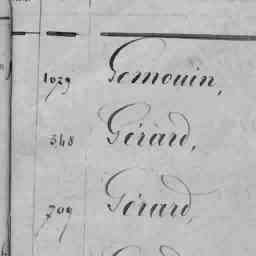 1029 Gomouin,
548 Gérard,
709 Gérard,